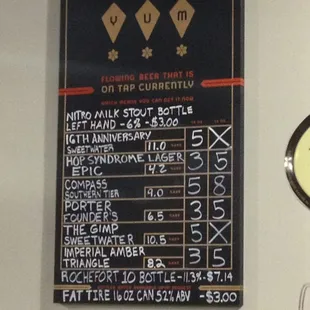 YUM
FLOWING BEER THAT IS
ON TAP CURRENTLY
WHICH MEANS YOU CAN GET IT NOW
NITRO MILK STOUT BOTTLE
LEFT HAND - 6% - $3.00
16TH ANNIVERSARY 5 X
SWEETWATER 11.0
HOP SYNDROME LAGER 3 5
EPIC 4.2
COMPASS 5 8
SOUTHERN TIER 9.0
PORTER 3 5
FOUNDER'S 6.5
THE GIMP 5 X
SWEETWATER 10.5
IMPERIAL AMBER 3 5
TRIANGLE 8.2
ROCHEFORT 10 BOTTLE - 11.3% - $7.14
FAT TIRE 16 OZ CAN 5.2% ABV - $3.00